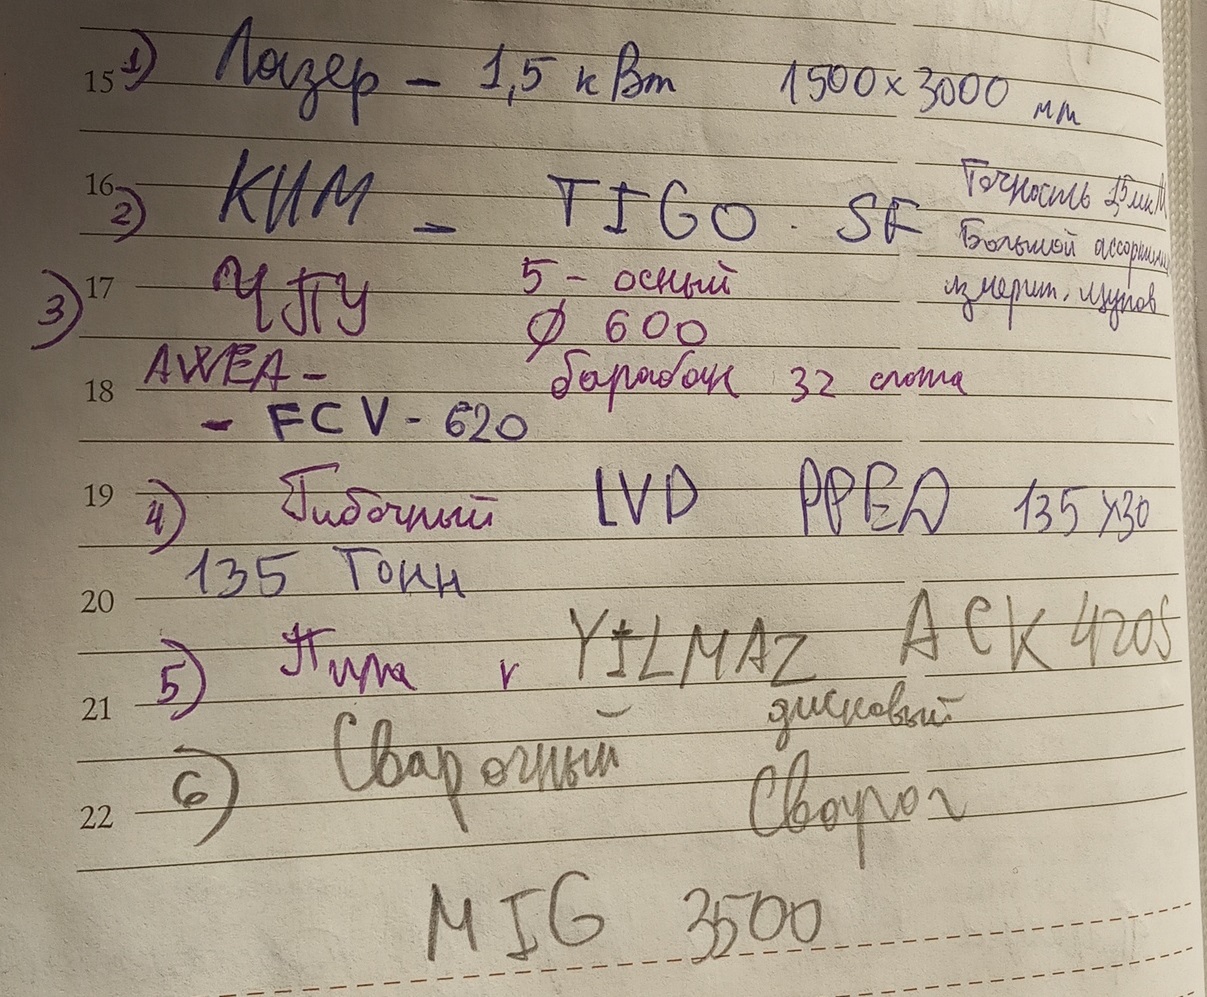 15 1) Лазер - 1,5 кВт 1500х3000 мм
16 2) КИМ - TIGO SF Точность 1,5 мкм
Большой ассортимен
измерит. щупов
17 3) ЧПУ 5-осный
Ø 600
18 AWEA - барабан 32 слота
- FCV-620
19 4) Гибочный LVD PPED 135х30
135 Тонн
20
21 5) Пила YILMAZ ACK 420S
дисковый
22 6) Сварочный Сварог
MIG 3500